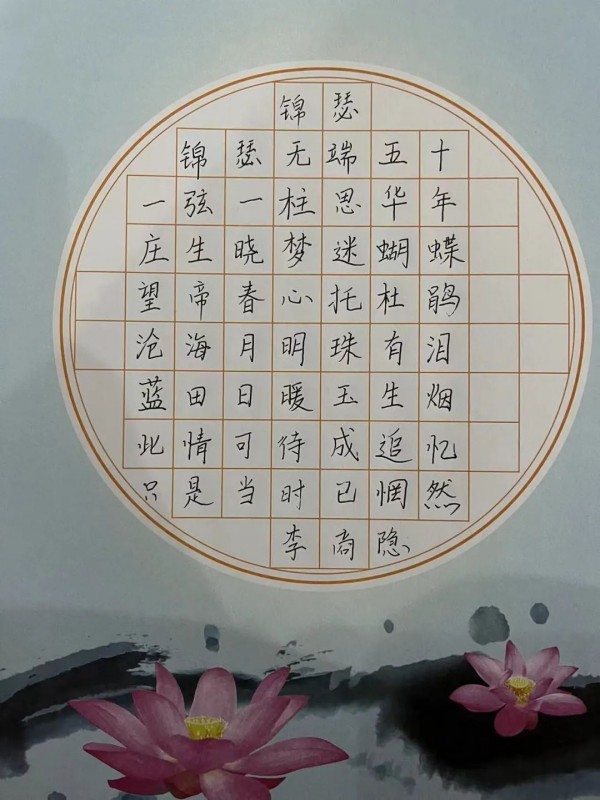 锦瑟
锦瑟无端五十
一弦一柱思华年
庄生晓梦迷蝴蝶
望帝春心托杜鹃
沧海月明珠有泪
蓝田日暖玉生烟
此情可待成追忆
只是当时已惘然
李商隐